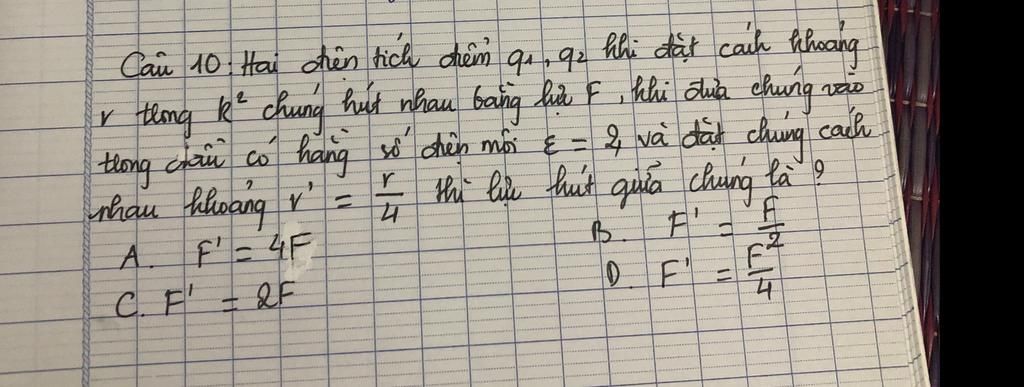 Câu 10: Hai điện tích điểm q1, q2 khi đặt cách khoảng
r trong k² chúng hút nhau bằng lực F, khi đưa chúng vào
trong dầu có hằng số điện môi ε = 2, và đặt chúng cách
nhau khoảng r' = r/4 thì lực hút giữa chúng là ?
A. F' = 4F B. F' = F/2
C. F' = 2F D. F' = F/4